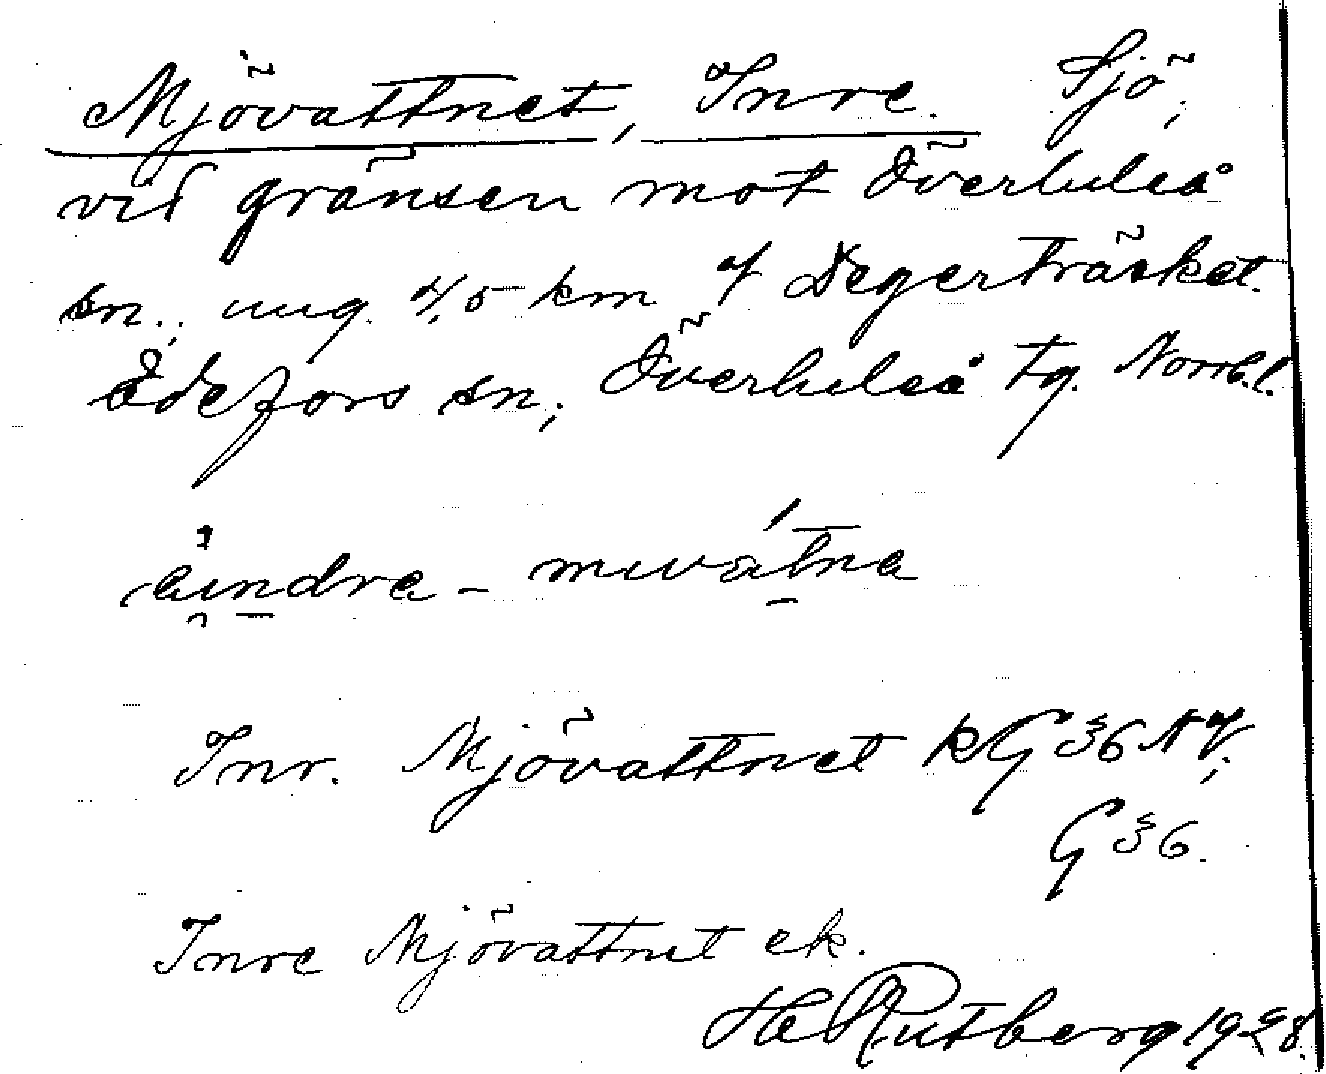 Mjövattnet, Inre. Sjö;
vid gränsen mot Överluleå
sn.; ung. 4,5 km V Degerträsket.
Edefors sn; Överluleå tg. Norrb.l.
Inr. Mjövattnet kG 36 NV;
G 36.
Inre Mjövattnet ek.
He Rutberg 1928.